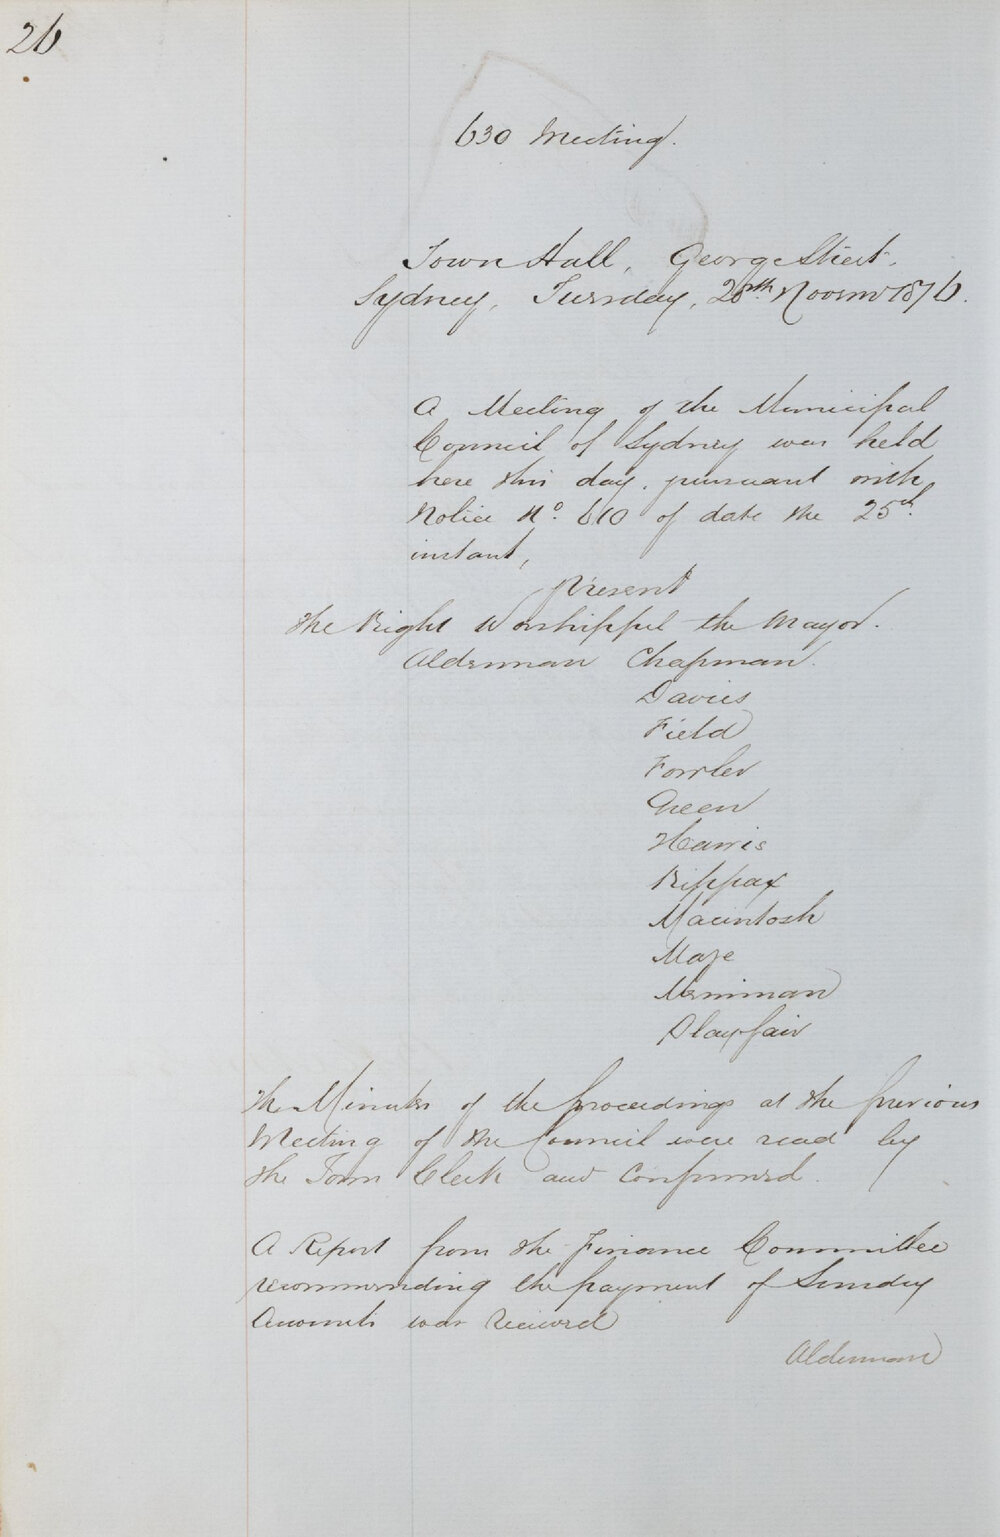 26
630 Meeting.
Town Hall, George Street.
Sydney, Tuesday, 28th Novemr 1876.
A Meeting of the Municipal
Council of Sydney was held
here this day, pursuant with
Notice No. 610 of date the 25th
instant,
Present
The Right Worshipful the Mayor.
Alderman Chapman.
Davies
Field
Fowler
Green
Harris
Kippax
Macintosh
Maze
Merriman
Playfair
The Minutes of the proceedings at the previous
Meeting of the Council were read by
the Town Clerk and Confirmed.
A Report from the Finance Committee
recommending the payment of Sundry
Accounts was received
Alderman